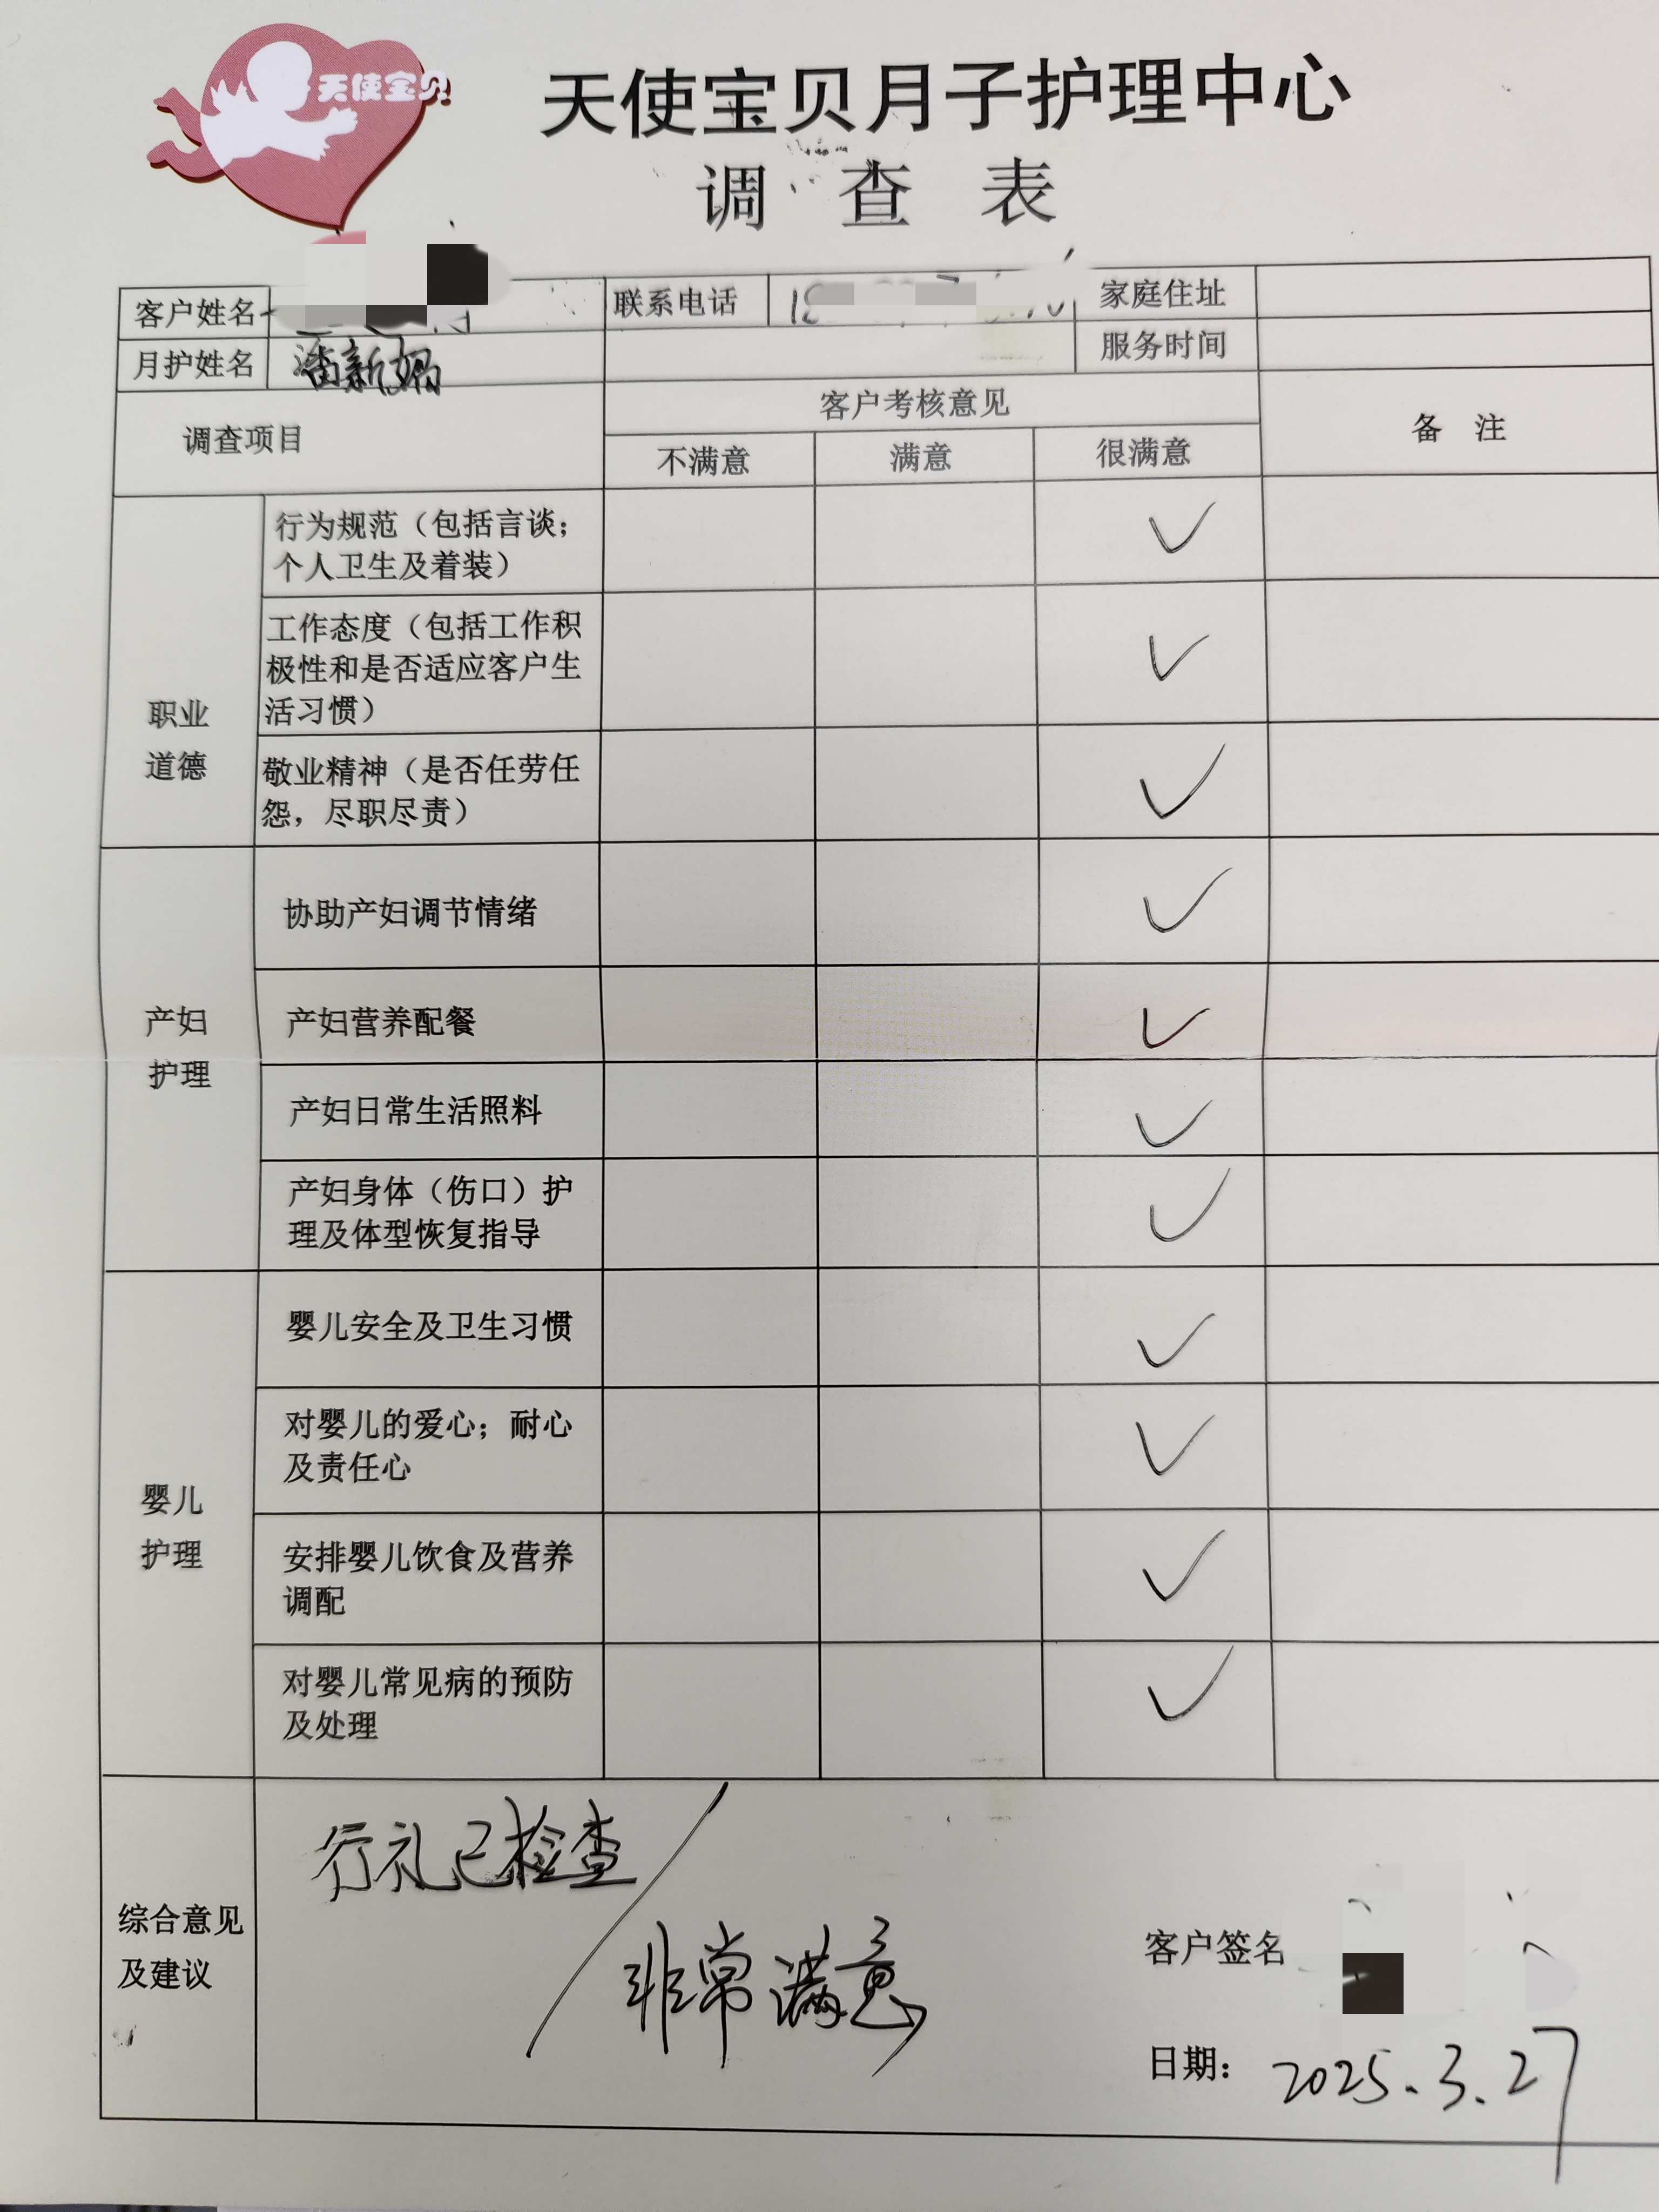 天使宝贝
天使宝贝月子护理中心
调 查 表
客户姓名 联系电话 家庭住址
月护姓名 潘新娟 服务时间
调查项目 客户考核意见 备 注
不满意 满意 很满意
职业
道德
行为规范（包括言谈；
个人卫生及着装）
工作态度（包括工作积
极性和是否适应客户生
活习惯）
敬业精神（是否任劳任
怨，尽职尽责）
产妇
护理
协助产妇调节情绪
产妇营养配餐
产妇日常生活照料
产妇身体（伤口）护
理及体型恢复指导
婴儿
护理
婴儿安全及卫生习惯
对婴儿的爱心；耐心
及责任心
安排婴儿饮食及营养
调配
对婴儿常见病的预防
及处理
综合意见
及建议
行礼已检查
非常满意
客户签名
日期：2025.3.27